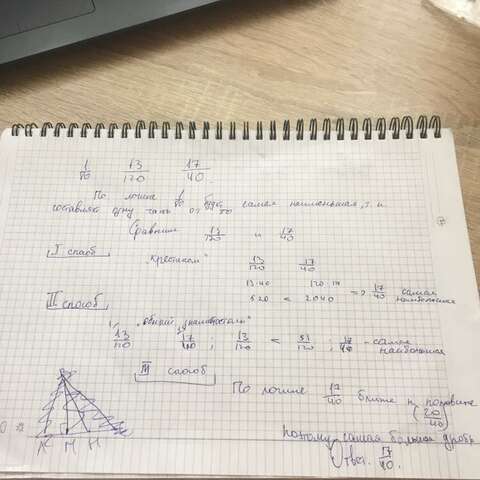 1/80 13/120 17/40.
По логике 1/80 будет самая наименьшая, т.к.
составляет одну часть от 80
Сравним 13/120 и 17/40
I способ
"крестиком" 13/120 17/40
13·40 120·17
520 < 2040 => 17/40 самая наибольшая
II способ
"общий знаменатель"
13/120 17/40 ; 13/120 < 51/120 ; 17/40 - самая наибольшая
III способ
По логике 17/40 ближе к половине (20/40)
поэтому самая большая дробь
Ответ. 17/40.
K M H